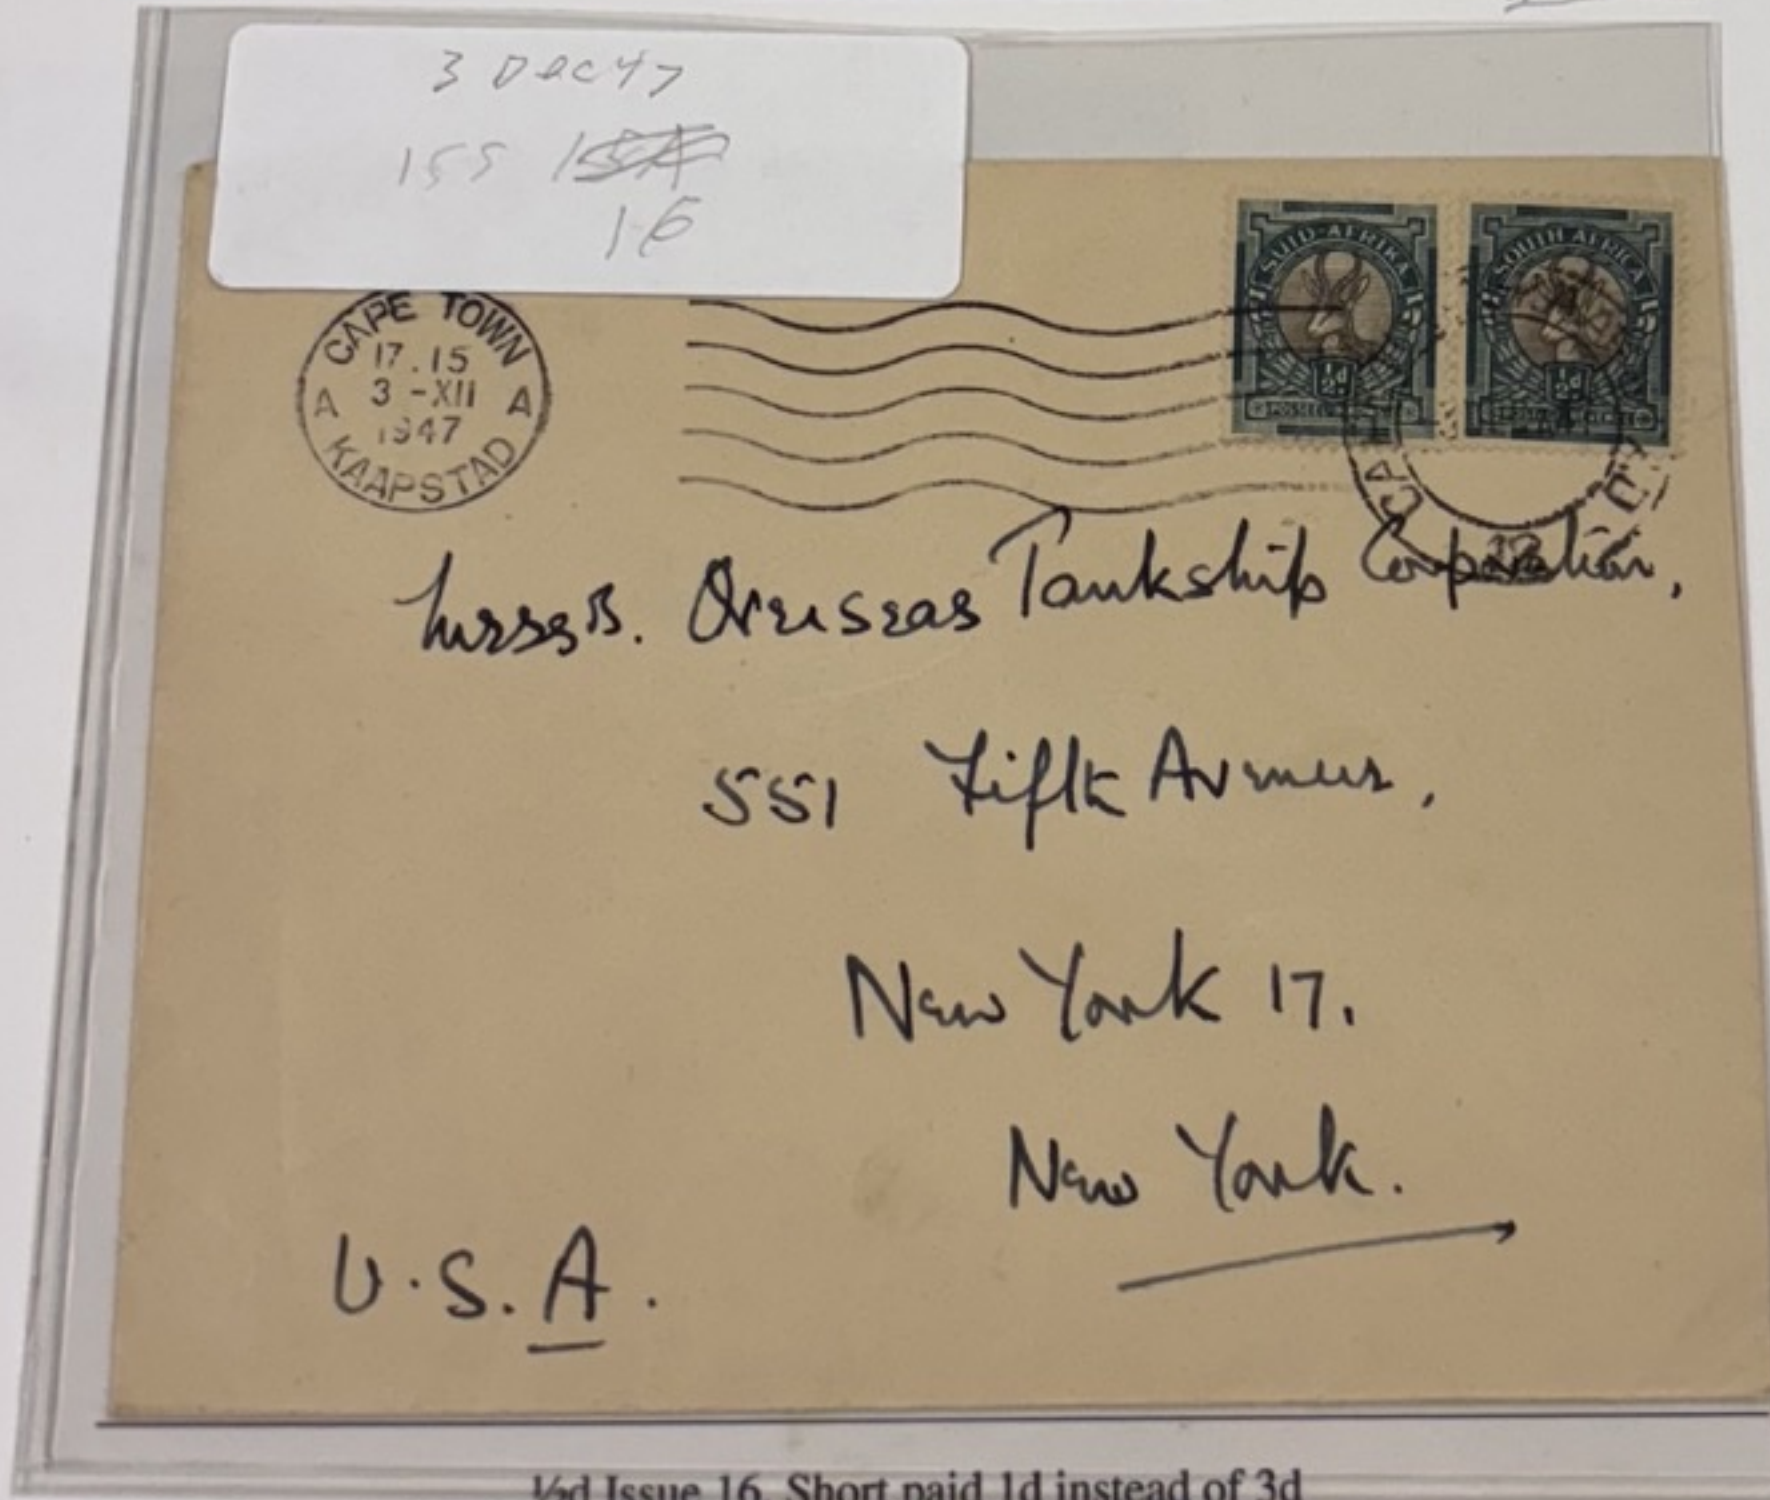 3 Dec 47
155
16
CAPE TOWN
17.15
A 3 -XII A
1947
KAAPSTAD
SUID-AFRIKA
½d
SOUTH AFRICA
½d
Messrs. Overseas Tankship Corporation,
551 Fifth Avenue,
New York 17.
New York.
U.S.A.
½d Issue 16 Short paid 1d instead of 3d